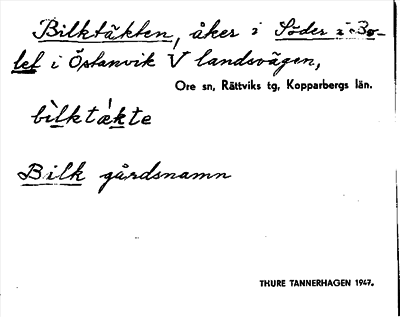 Bilktäkten, åker i Söder i Bo-
let i Östanvik V landsvägen,
Ore sn, Rättviks tg, Kopparbergs län.
bìlktǽkte
Bilk gårdsnamn
THURE TANNERHAGEN 1947.